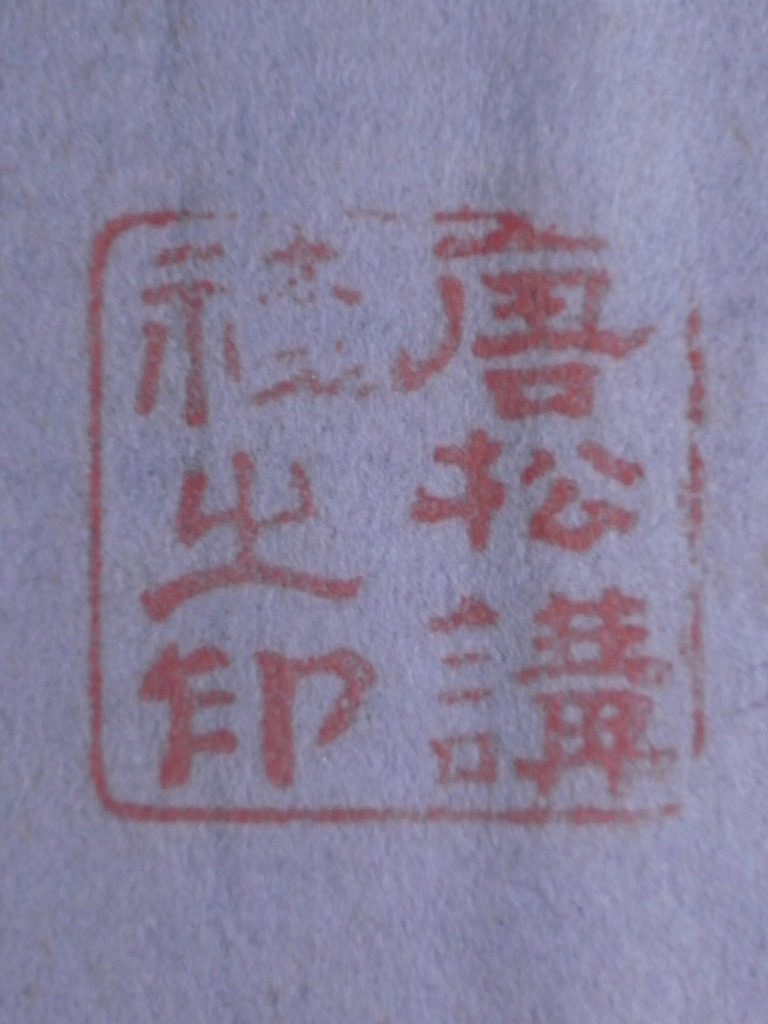 唐松講
社之印